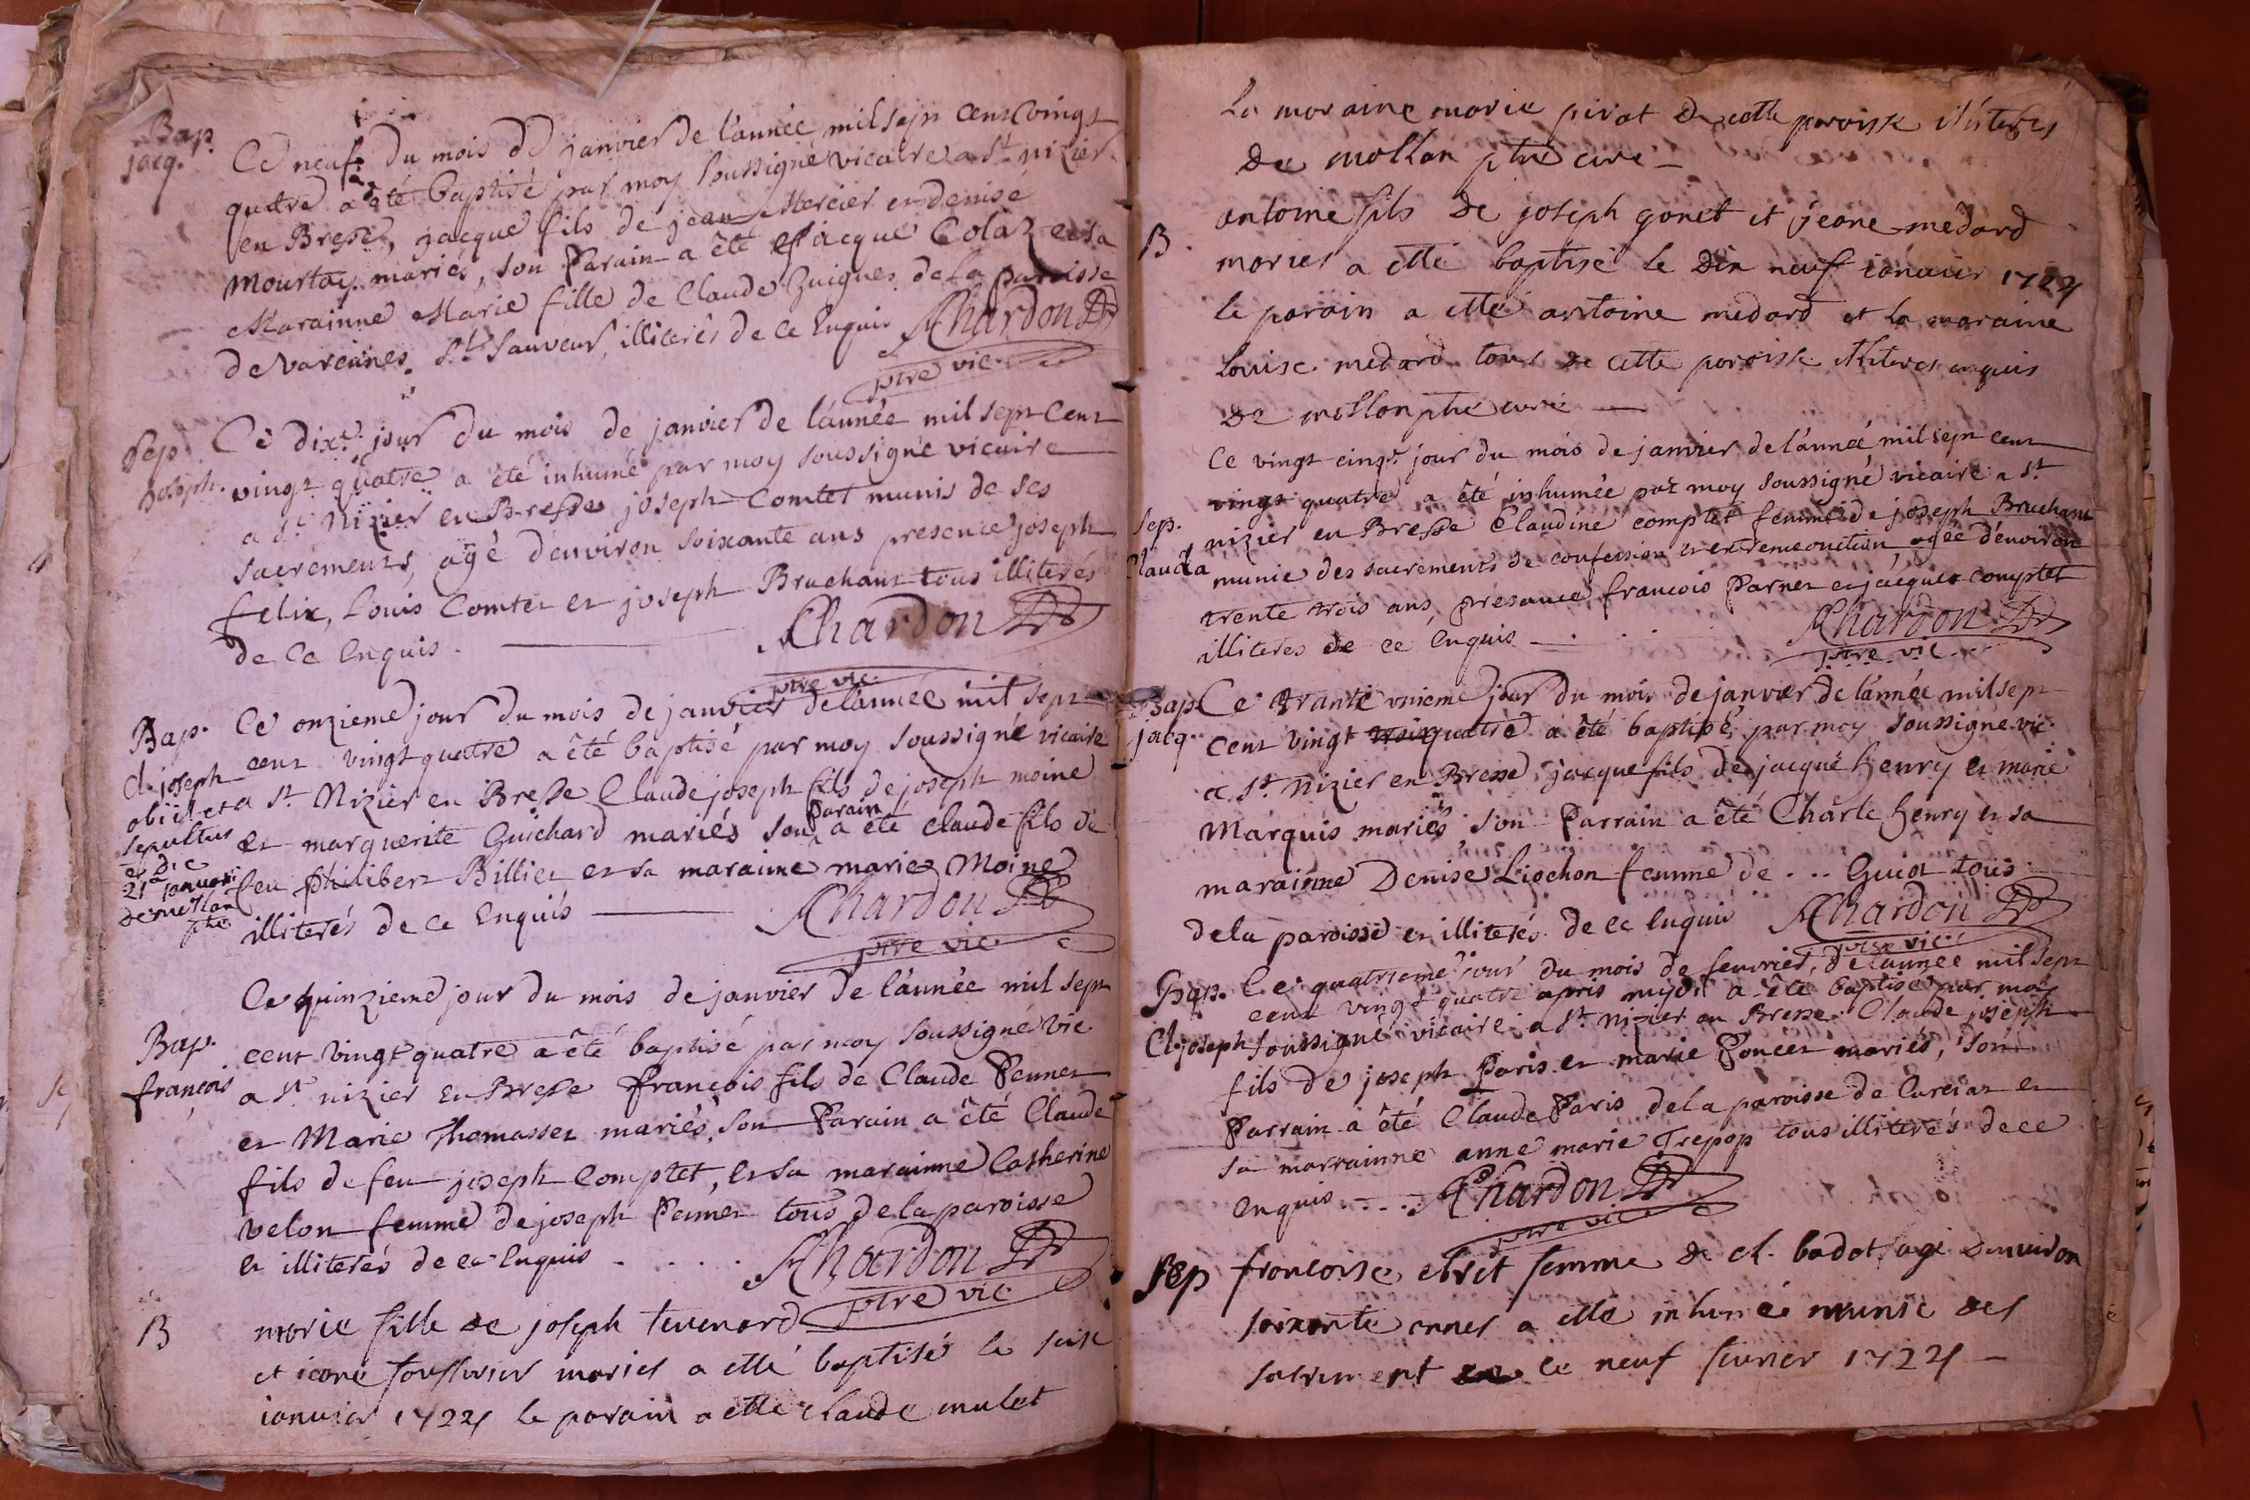 Bap.
jacq.
Ce neufe du mois de janvier de l'année mil sept cent vingt
quatre a été baptisé par moy soussigné vicaire a st. nizier
en Bresse, jacque fils de jean Mercier et denise
Mourtoy mariés, son Parain a été jacque Colaz et sa
Marainne Marie fille de Claude Zuigues de la paroisse
de varennes St. Sauveur, illiterés de ce Enquis AChardon
ptre vic.
Sep.
Joseph.
Ce dixe. jour du mois de janvier de l'année mil sept cent
vingt quatre a été inhumé par moy soussigné vicaire
a st. Nizier en Bresse joseph Comtet munis de ses
sacrements, agé d'environ soixante ans presence joseph
felix, Louis Comtet et joseph Bruchant tous illiterés
de ce Enquis. AChardon
ptre vic.
Bap.
Cl. joseph
obiit et
sepultus
er die
21a januari
de mollan
ptre
Ce onzieme jour du mois de janvier de l'année mil sept
cent vingt quatre a été baptisé par moy soussigné vicaire
a st. Nizier en Bresse Claude joseph fils de joseph moine
et marguerite Guichard mariés son Parain a été claude fils de
feu Philibert Billiet et sa maraine marie Moine
illiterés de ce Enquis AChardon
ptre vic.
Bap.
françois
Ce quinzieme jour du mois de janvier de l'année mil sept
cent vingt quatre a été baptisé par moy soussigné vic
a st nizier en Bresse françois fils de Claude Pennet
et Marie Thomasset mariés, son Parain a été Claude
fils de feu joseph Comptet, et sa marainne Catherine
velon femme de joseph Pennet tous de la paroisse
et illiterés de ce Enquis . . . . AChardon
ptre vic.
B
marie fille de joseph tevenard
et icane mariés a etté baptisé le seise
ianvier 1724 le parain a etté claude mulet
La moraine marie pirat de cette paroisse illiteres
De mollan ptre curé
B
antoine fils de joseph gonet et jeane médard
mariés a etté baptisé le dix neuf ianvier 1724
le parain a etté antoine medard et la maraine
Louise medard tous de cette paroisse illiteres enquis
De mollan ptre curé
Sep.
Clauda
Ce vingt cinqe. jour du mois de janvier de l'année mil sept cent
vingt quatre a été inhumée par moy soussigné vicaire a st.
nizier en Bresse Claudine comptet femme de joseph Bruchant
munie des sacrements de confession et extremeonction agée d'environ
trente trois ans, présance françois Parnet et jacques comptet
illiteres de ce Enquis AChardon
ptre vic.
Bap
jacq.
Ce trante unieme jour du mois de janvier de l'année mil sept
cent vingt quatre a été baptisé par moy soussigné vic.
a st. Nizier en Bresse jacque fils de jacque henry et marie
Marquis mariés son Parrain a été Charle henry et sa
marainne Denise Liochon femme de . . . Guiot tous
de la paroisse et illiterés de ce Enquis AChardon
ptre vic.
Bap.
Cl. joseph
Ce quatrieme jour du mois de fevrier, de l'année mil sept
cent vingt quatre apris mydi a été baptisé par moy
soussigné vicaire a st. Nizier en Bresse Claude joseph
fils de joseph Paris et marie Poncet mariés, son
Parrain a été Claude Paris de la paroisse de Curciat et
sa marrainne anne marie Trepop tous illiterés de ce
Enquis . . . . AChardon
ptre vic.
Sep
francoise femme de cl. badot agé denviron
soixante annes a etté inhumé munie des
sacriment ce neuf fevrier 1724